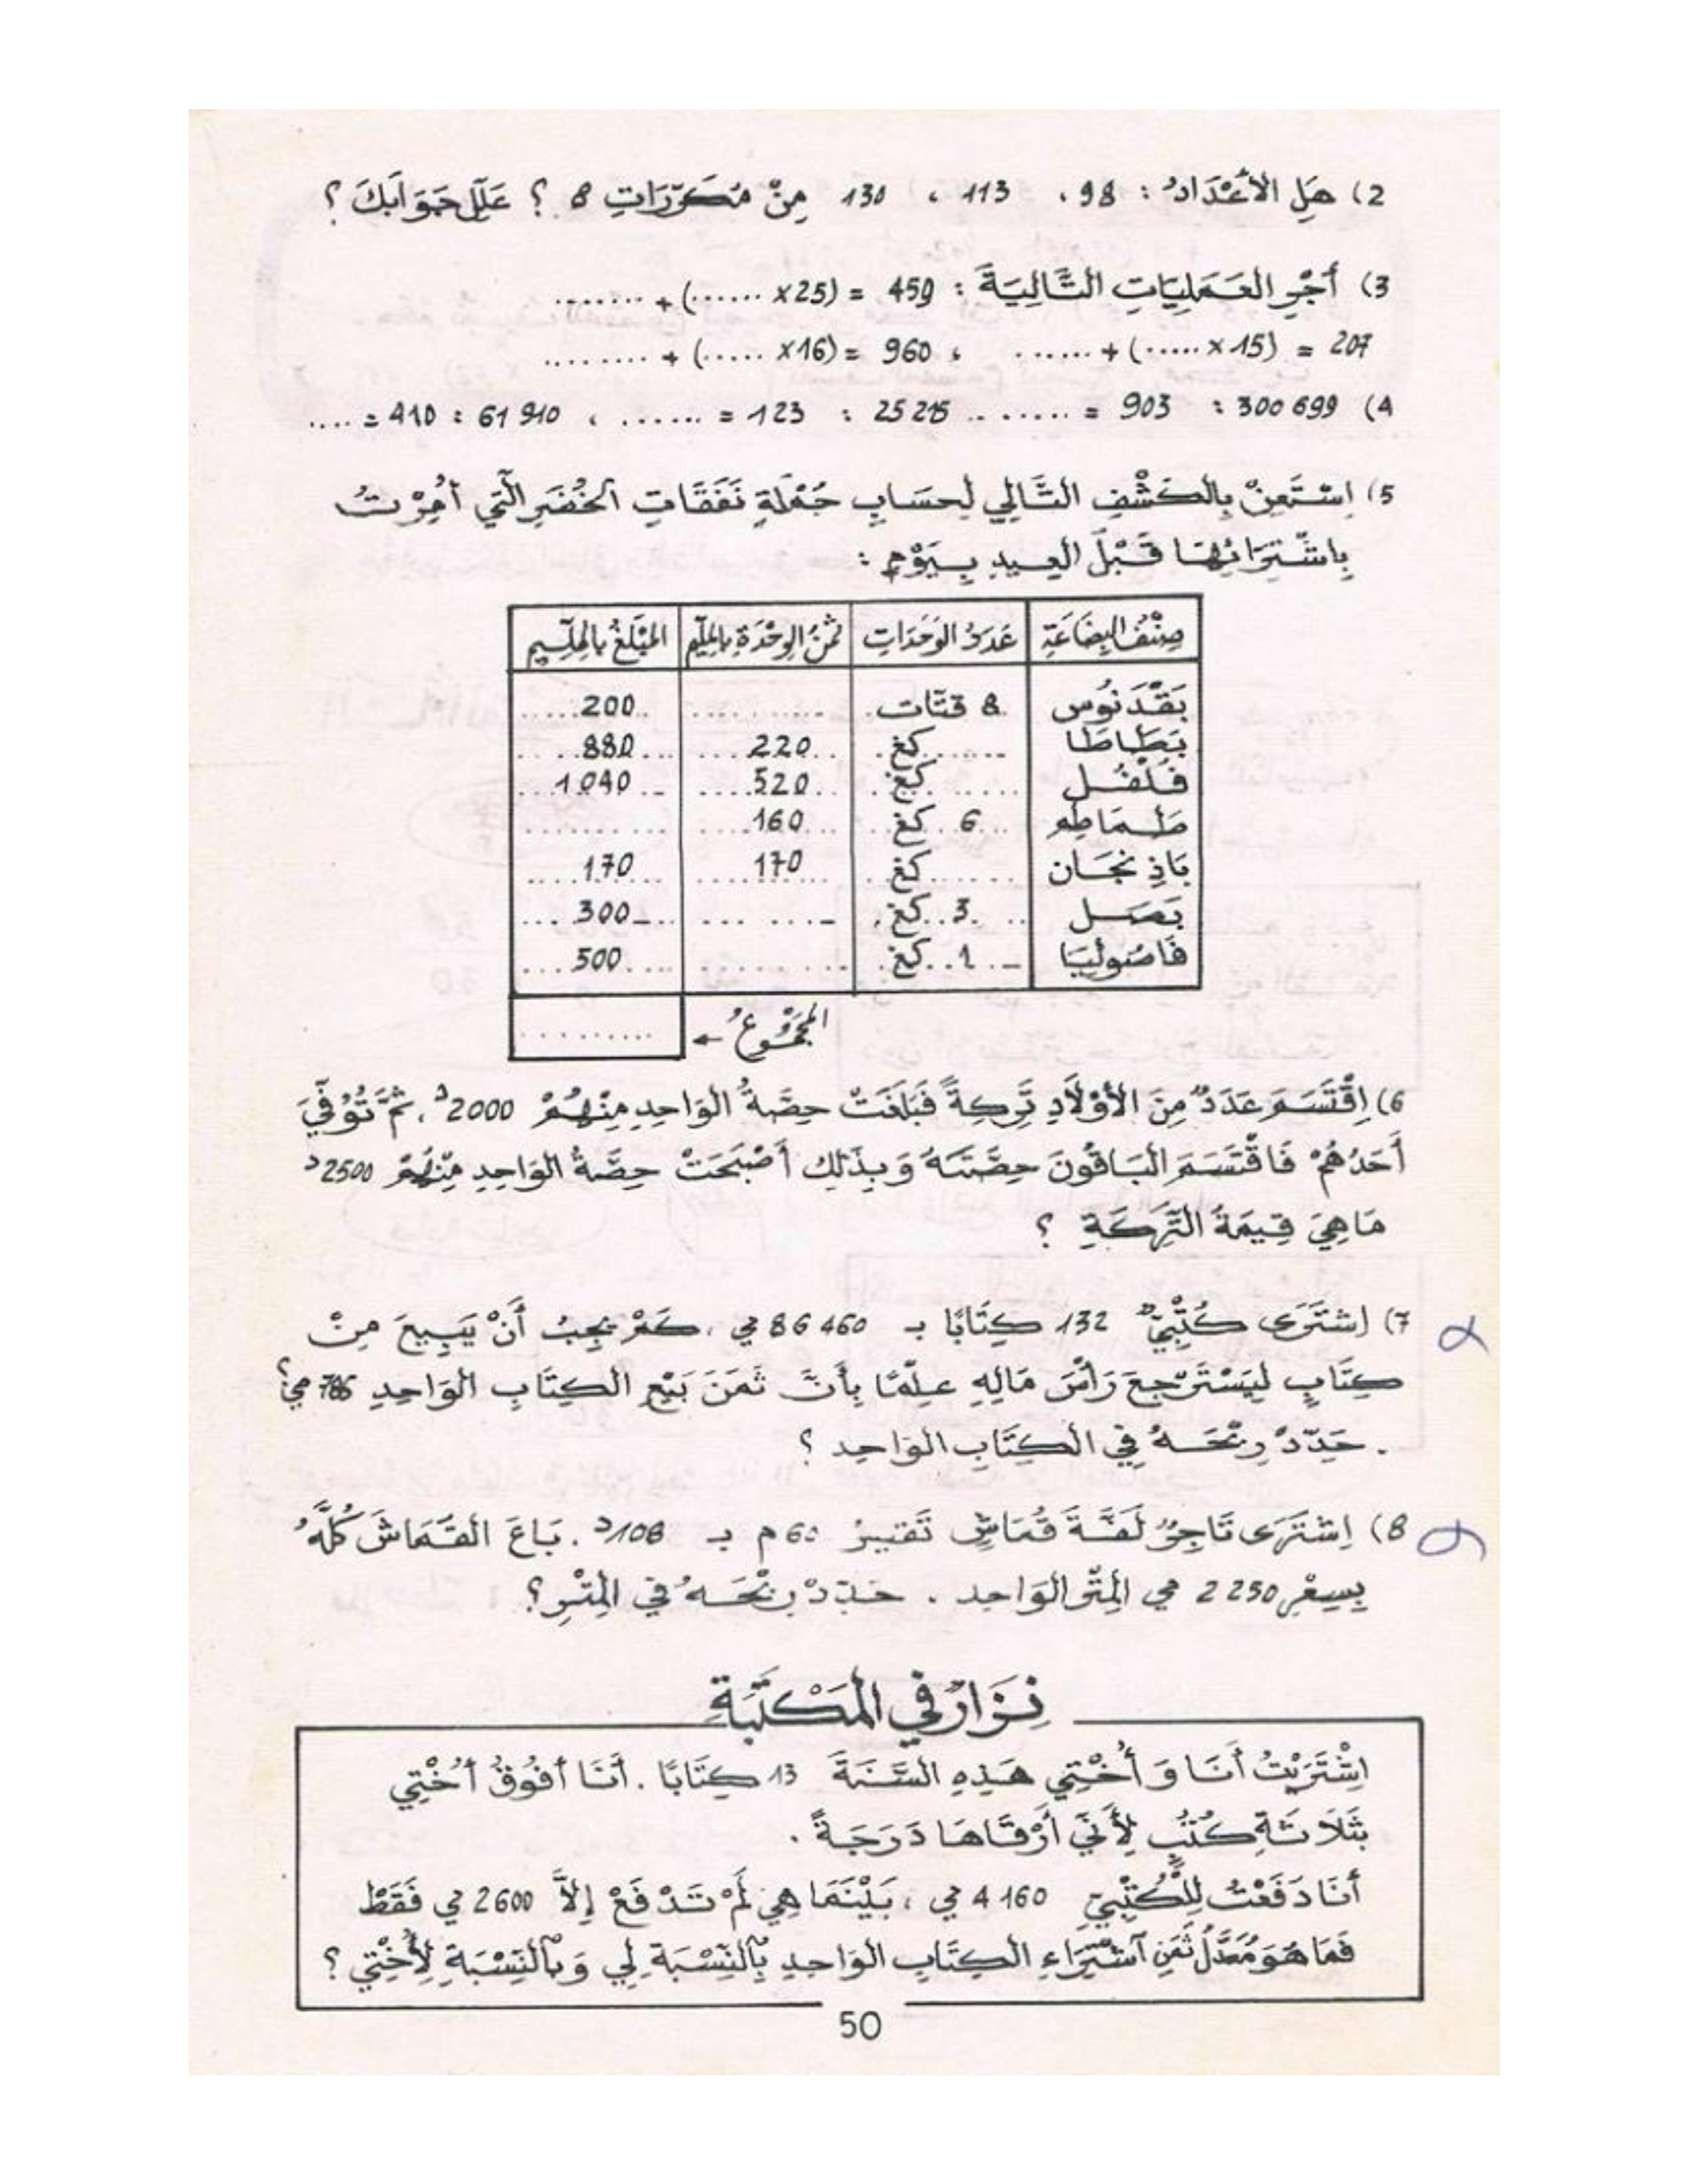 2) هَلِ الأَعْدَادُ : 98 ، 113 ، 130 مِنْ مُكَرَّرَاتِ 8 ؟ عَلِّلْ جَوَابَكَ ؟
3) أَجْرِ العَمَلِيَّاتِ التَّالِيَةَ : 459 = (25× ......) + ........
207 = (15 × .....) + ...... ، 960 = (16× .....) + .........
4) 300 699 : 903 = ....... .. 25 215 : 123 = ....... ، 61 910 : 410 = ....
5) اِسْتَعِنْ بِالكَشْفِ التَّالِي لِحِسَابِ جُمْلَةِ نَفَقَاتِ الخُضَرِ الَّتِي أُمِرْتُ
بِاشْتِرَائِهَا قَبْلَ العِيدِ بِيَوْمٍ :
صِنْفُ البِضَاعَةِ عَدَدُ الوَحَدَاتِ ثَمَنُ الوِحْدَةِ بِالمِلِّيمِ المَبْلَغُ بِالمِلِّيمِ
بَقْدَنُوس 8 قتّات .......... 200
بَطَاطَا ...... كغ 220 880
فُلْفُل ...... كغ 520 1040
طَمَاطِم 6 كغ 160 ..........
بَاذِنْجَان ...... كغ 170 170
بَصَل 3 كغ ...... 300
فَاصُولْيَا 1 كغ ........ 500
المَجْمُوعُ ← .........
6) اِقْتَسَمَ عَدَدٌ مِنَ الأَوْلَادِ تَرِكَةً فَبَلَغَتْ حِصَّةُ الوَاحِدِ مِنْهُمْ 2000د ، ثُمَّ تُوُفِّيَ
أَحَدُهُمْ فَاقْتَسَمَ البَاقُونَ حِصَّتَهُ وَبِذَلِكَ أَصْبَحَتْ حِصَّةُ الوَاحِدِ مِنْهُمْ 2500د
مَا هِيَ قِيمَةُ التَّرِكَةِ ؟
7) اِشْتَرَى كُتُبِيٌّ 132 كِتَابًا بـ 86 460 مي ، كَمْ يَجِبُ أَنْ يَبِيعَ مِنْ
كِتَابٍ لِيَسْتَرْجِعَ رَأْسَ مَالِهِ عِلْمًا بِأَنَّ ثَمَنَ بَيْعِ الكِتَابِ الوَاحِدِ 786 مي ؟
. حَدِّدْ رِبْحَهُ فِي الكِتَابِ الوَاحِدِ ؟
8) اِشْتَرَى تَاجِرٌ لَفَّةَ قُمَاشٍ تَقِيسُ 60 م بـ 108د . بَاعَ القُمَاشَ كُلَّهُ
بِسِعْرِ 2 250 مي المِتْرَ الوَاحِدَ . حَدِّدْ رِبْحَهُ فِي المِتْرِ ؟
نِزَارٌ فِي المَكْتَبَةِ
اِشْتَرَيْتُ أَنَا وَ أُخْتِي هَذِهِ السَّنَةَ 13 كِتَابًا . أَنَا أَفُوقُ أُخْتِي
بِثَلَاثَةِ كُتُبٍ لِأَنِّي أَرْقَاهَا دَرَجَةً .
أَنَا دَفَعْتُ لِلْكُتُبِيِّ 4 160 مي ، بَيْنَمَا هِيَ لَمْ تَدْفَعْ إِلاَّ 2600 مي فَقَطْ
فَمَا هُوَ مُعَدَّلُ ثَمَنِ آشْتِرَاءِ الكِتَابِ الوَاحِدِ بِالنِّسْبَةِ لِي وَبِالنِّسْبَةِ لِأُخْتِي ؟
50